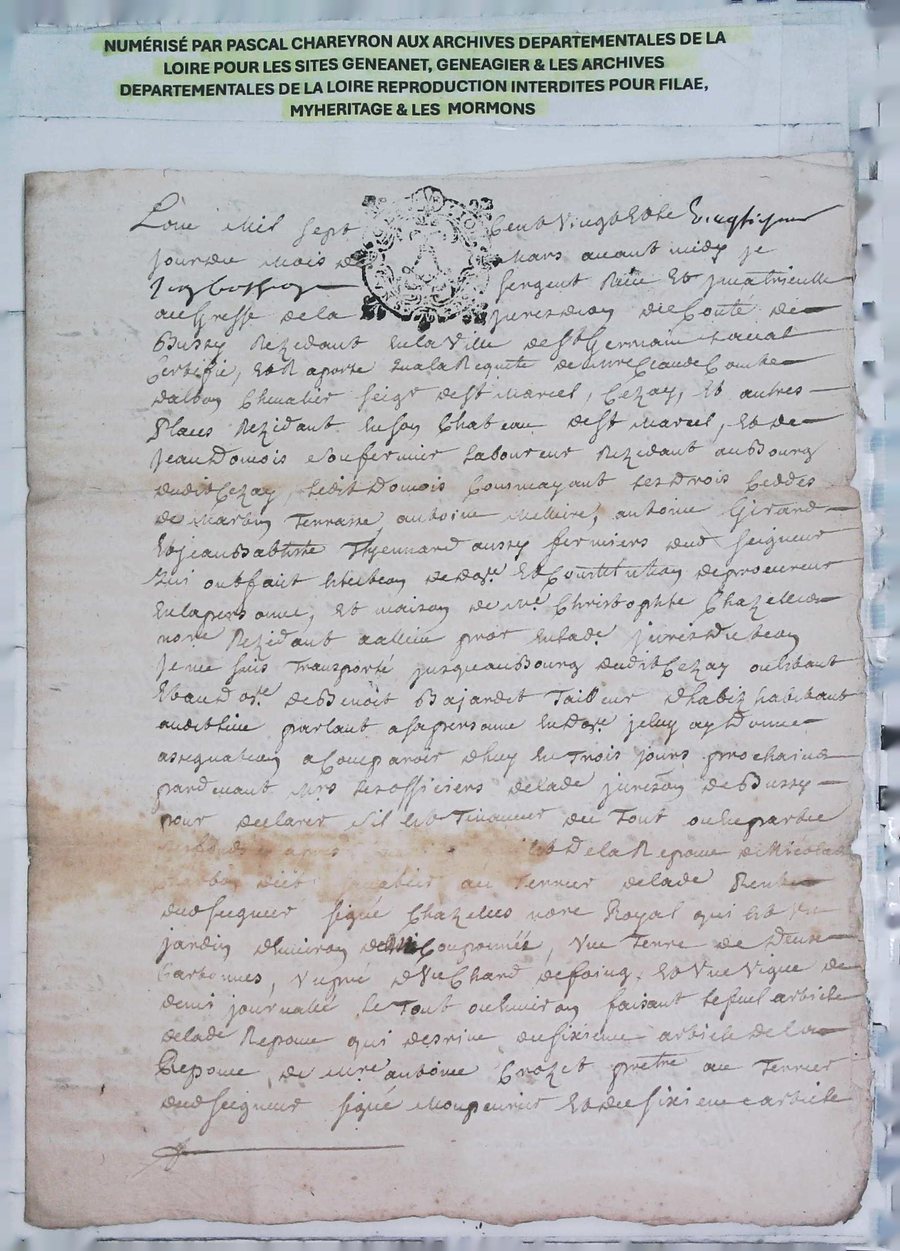 NUMÉRISÉ PAR PASCAL CHAREYRON AUX ARCHIVES DEPARTEMENTALES DE LA
LOIRE POUR LES SITES GENEANET, GENEAGIER & LES ARCHIVES
DEPARTEMENTALES DE LA LOIRE REPRODUCTION INTERDITES POUR FILAE,
MYHERITAGE & LES MORMONS
L'an Mil sept Cent Vingt et le Vingtieme
jour du Mois de Mars avant midy je
sergent et immatriculle
au Greffe de la jurisdion du Conté de
Bussy Rezidant en la Ville de St Germain Laval
Certifie, et Raporte qu'a la Requete de Mre Claude Comte
dalbon Chevalier seigr de St Marcel, Cezay, et autres
places Rezidant en son Chateau de St Marcel, et de
jean Domois son fermier Laboureur Rezidant au Bourg
dudit Cezay, ledit Domois Cosme ayant les Drois Ceddes
de Martin Terrasse, antoine Melliere, antoine Girard
et jean Baptiste Thyennard aussy fermiers dud seigneur
qui ont fait election de dole et Constitution de procureur
en la personne, et maison de Me Christophle Chazelles
nore Rezidant procr en lade jurisdiction
je me suis Transporté jusqu'au Bourg dudit Cezay ou estant
et au Dole de Benoit Bajardet Tailleur d'habis habitant
audit lieu parlant a sa personne en Dole jeluy ay Donné
assignation a Comparoir d'huy en Trois jours prochains
pardevant Mrs les officiers de lade jurison de Bussy
pour declarer s'il est Tenancier du Tout ou en partie
des fonds apres de la Reponce de Nicolas
au Terrier de lade Rente
dud seigneur signé Chazelles nore Royal qui est un
jardin d'environ Couponnée, une Terre de Deux
Cartonnes, un pré d'un Chard de foing, et une Vigne de
demis journalié le Tout ou environ faisant le seul article
de lade Reponce qui desrive du sixieme article de la
Reponce de Mre antoine Crozet pretre au Terrier
dud seigneur signé et du sixieme article